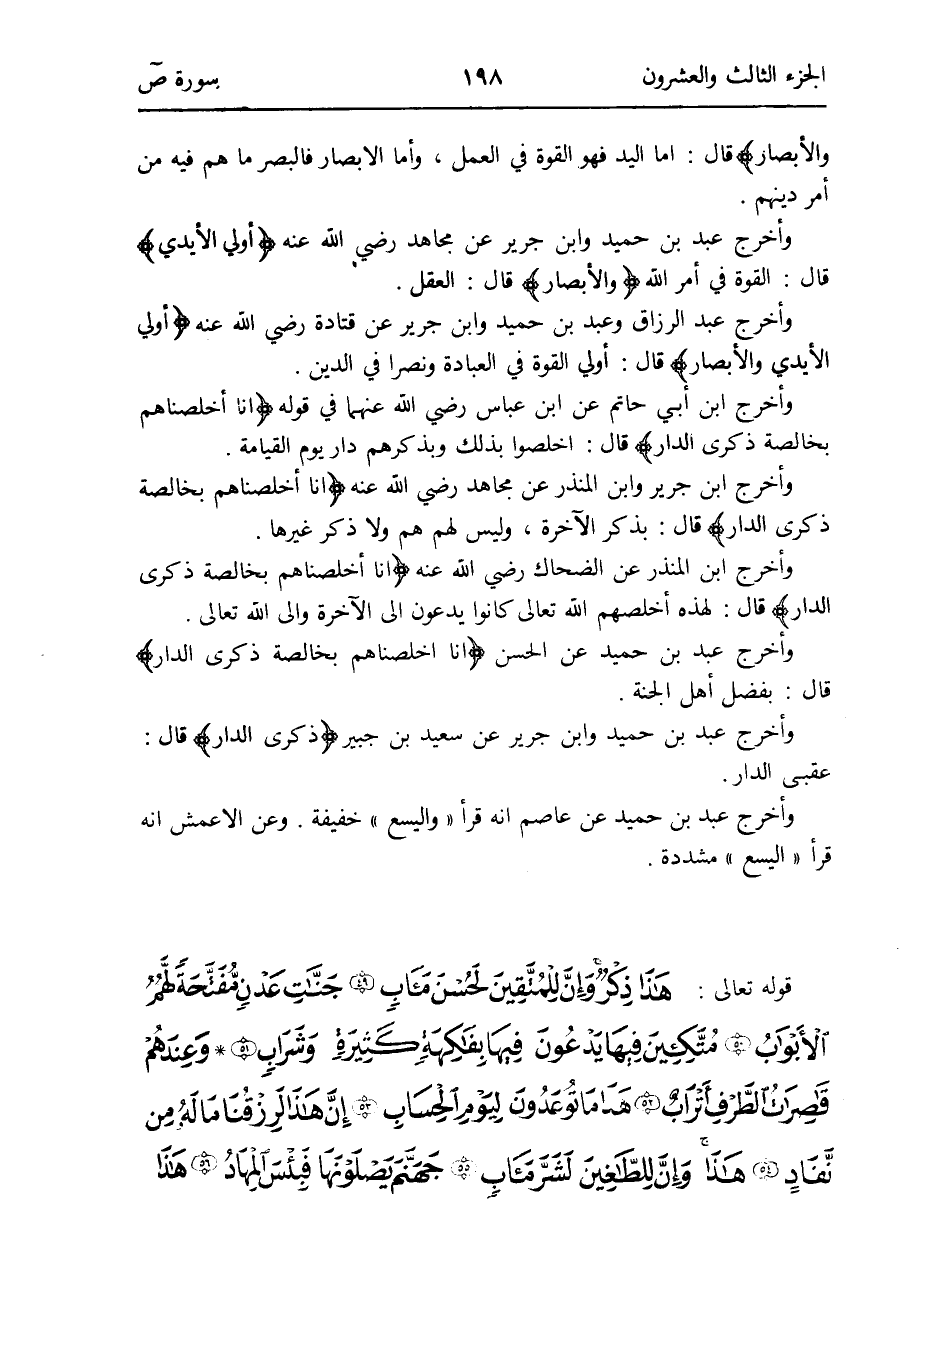 الجزء الثالث والعشرون ١٩٨ سورة صٓ
والأبصار﴾ قال : اما اليد فهو القوة في العمل ، وأما الابصار فالبصر ما هم فيه من
أمر دينهم .
وأخرج عبد بن حميد وابن جرير عن مجاهد رضي الله عنه ﴿أولي الأيدي﴾
قال : القوة في أمر الله ﴿والأبصار﴾ قال : العقل .
وأخرج عبد الرزاق وعبد بن حميد وابن جرير عن قتادة رضي الله عنه ﴿أولي
الأيدي والأبصار﴾ قال : أولي القوة في العبادة ونصرا في الدين .
وأخرج ابن أبي حاتم عن ابن عباس رضي الله عنهما في قوله ﴿انا أخلصناهم
بخالصة ذكرى الدار﴾ قال : اخلصوا بذلك وبذكرهم دار يوم القيامة .
وأخرج ابن جرير وابن المنذر عن مجاهد رضي الله عنه ﴿انا أخلصناهم بخالصة
ذكرى الدار﴾ قال : بذكر الآخرة ، وليس لهم هم ولا ذكر غيرها .
وأخرج ابن المنذر عن الضحاك رضي الله عنه ﴿انا أخلصناهم بخالصة ذكرى
الدار﴾ قال : لهذه أخلصهم الله تعالى كانوا يدعون الى الآخرة والى الله تعالى .
وأخرج عبد بن حميد عن الحسن ﴿انا اخلصناهم بخالصة ذكرى الدار﴾
قال : بفضل أهل الجنة .
وأخرج عبد بن حميد وابن جرير عن سعيد بن جبير ﴿ذكرى الدار﴾ قال :
عقبى الدار .
وأخرج عبد بن حميد عن عاصم انه قرأ « واليسع » خفيفة . وعن الاعمش انه
قرأ « اليسع » مشددة .
قوله تعالى : هَٰذَا ذِكْرٌۚ وَإِنَّ لِلْمُتَّقِينَ لَحُسْنَ مَـَٔابٍ ٤٩ جَنَّٰتِ عَدْنٍ مُّفَتَّحَةً لَّهُمُ
ٱلْأَبْوَٰبُ ٥٠ مُتَّكِـِٔينَ فِيهَا يَدْعُونَ فِيهَا بِفَٰكِهَةٍ كَثِيرَةٍ وَشَرَابٍ ٥١ * وَعِندَهُمْ
قَٰصِرَٰتُ ٱلطَّرْفِ أَتْرَابٌ ٥٢ هَٰذَا مَا تُوعَدُونَ لِيَوْمِ ٱلْحِسَابِ ٥٣ إِنَّ هَٰذَا لَرِزْقُنَا مَا لَهُۥ مِن
نَّفَادٍ ٥٤ هَٰذَاۚ وَإِنَّ لِلطَّٰغِينَ لَشَرَّ مَـَٔابٍ ٥٥ جَهَنَّمَ يَصْلَوْنَهَا فَبِئْسَ ٱلْمِهَادُ ٥٦ هَٰذَا